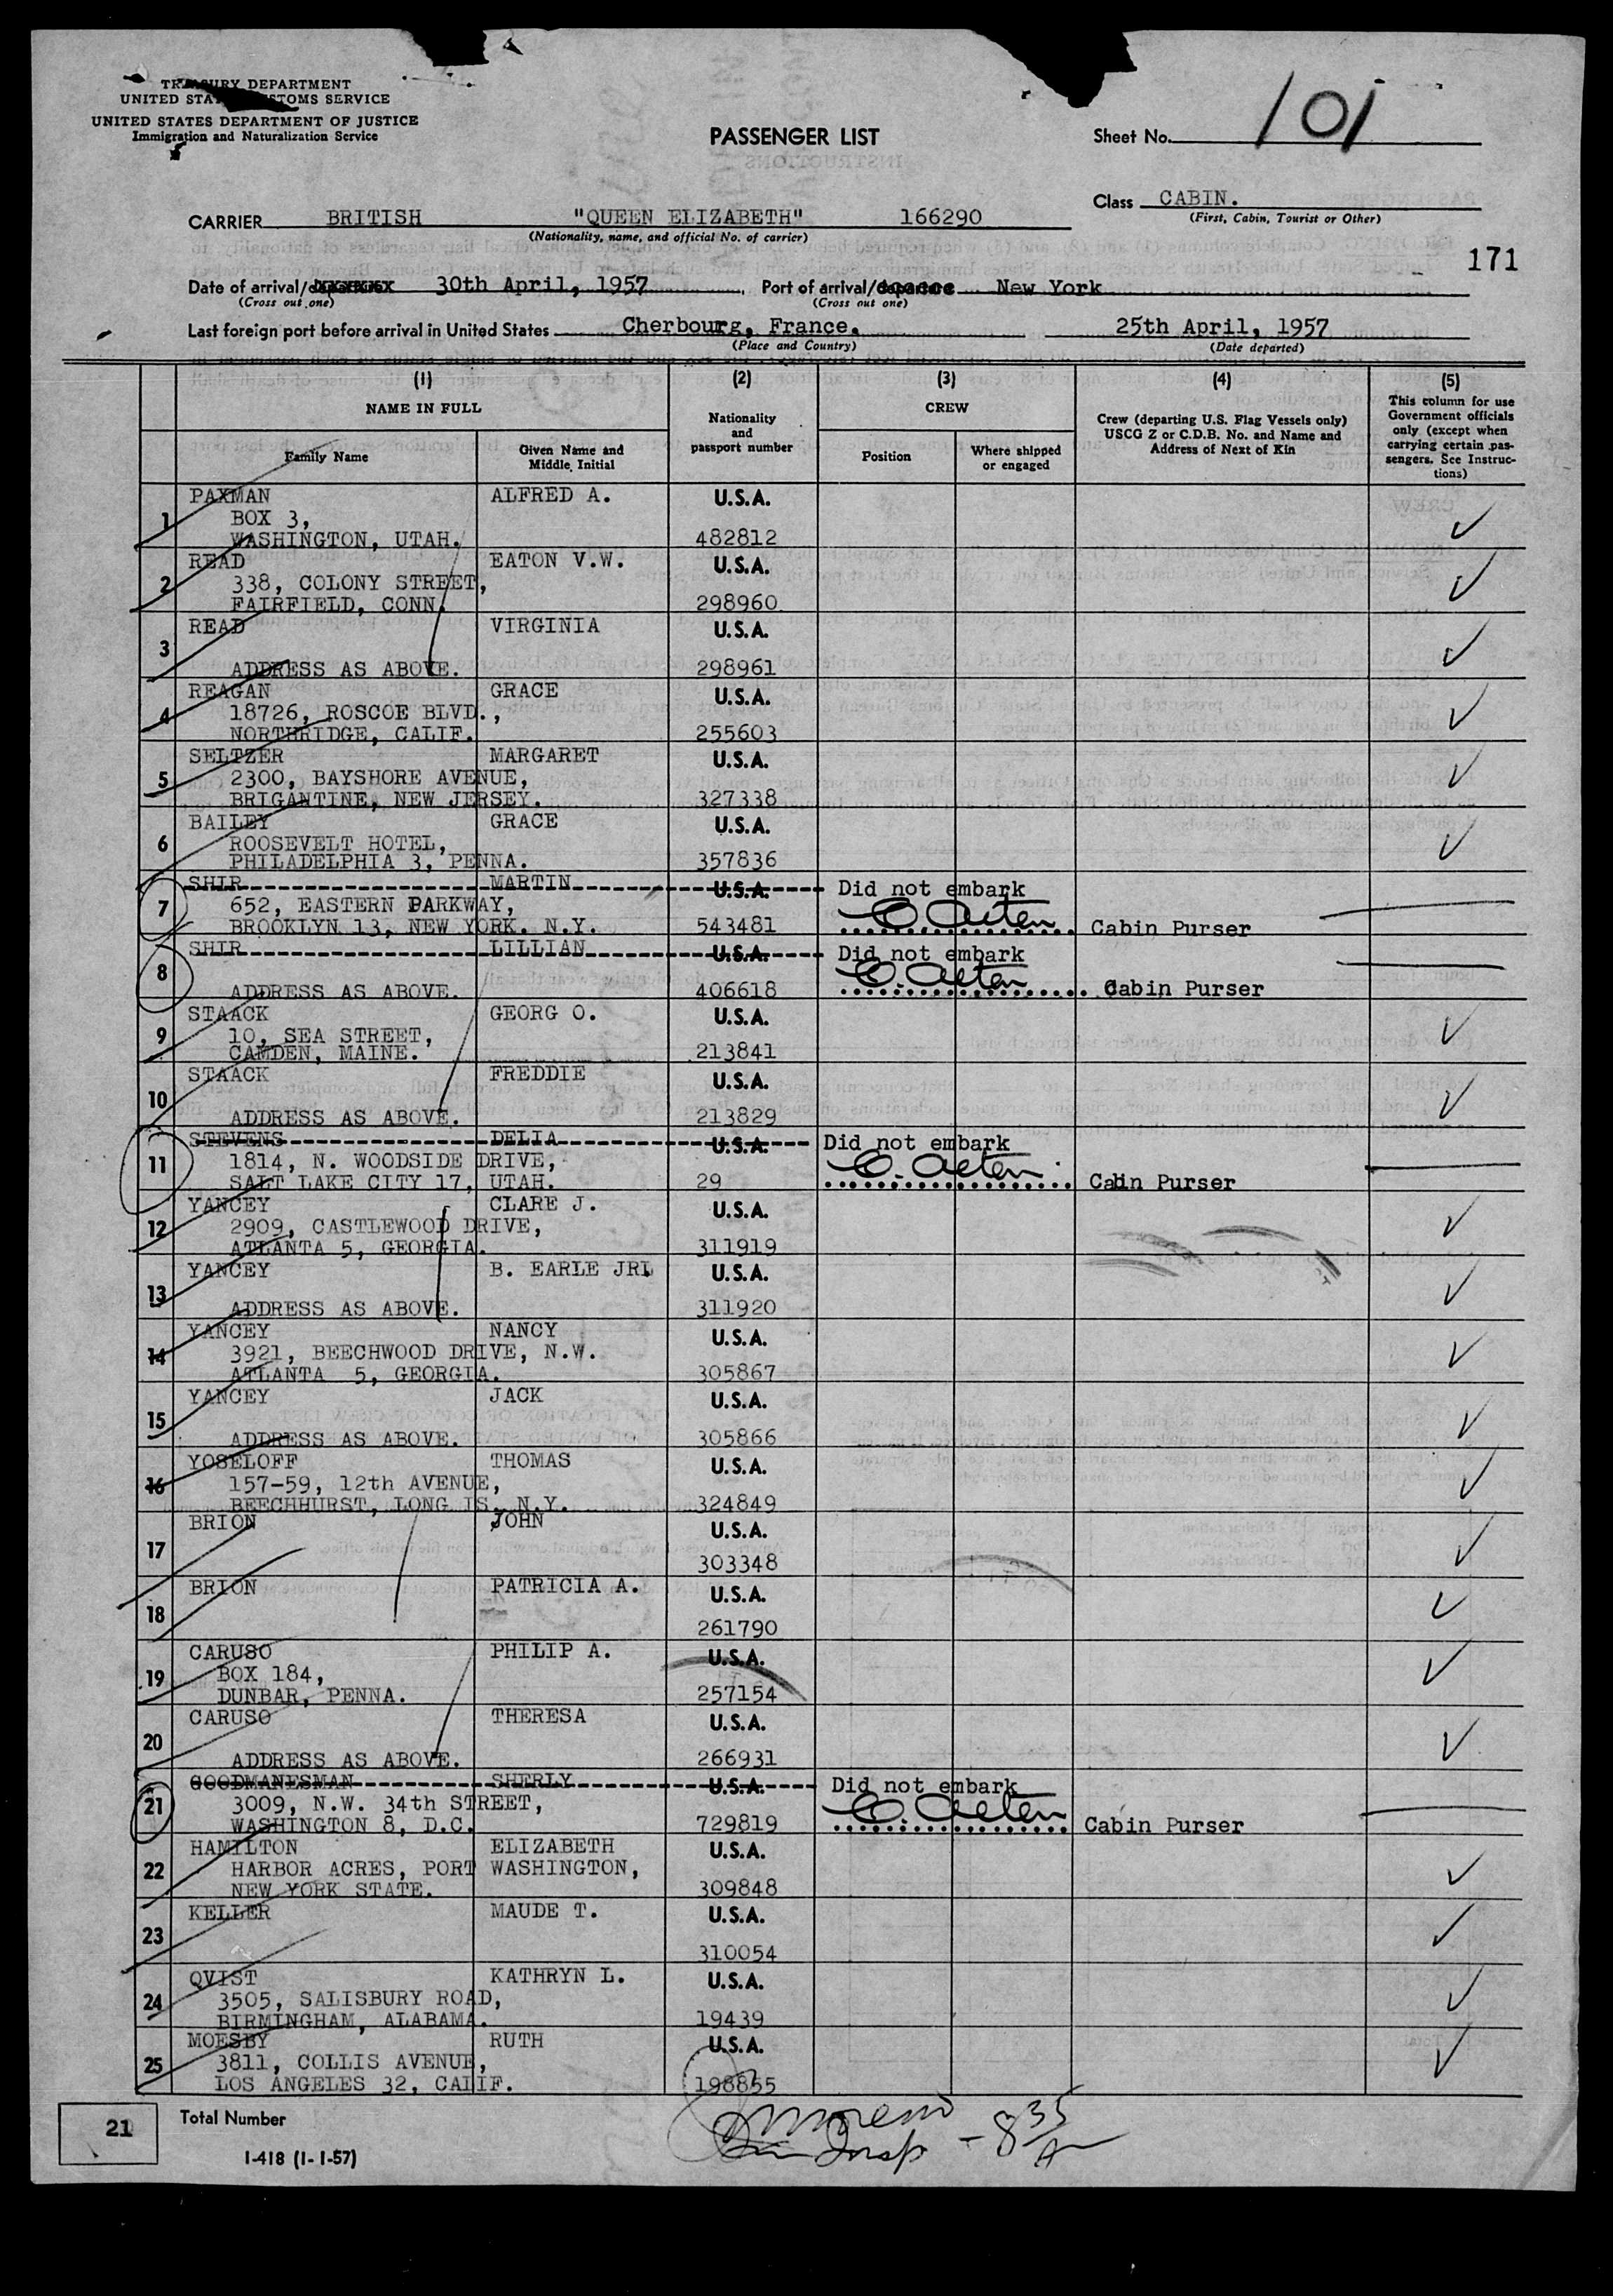 TREASURY DEPARTMENT
UNITED STATES CUSTOMS SERVICE
UNITED STATES DEPARTMENT OF JUSTICE
Immigration and Naturalization Service
PASSENGER LIST
Sheet No. 101
Class CABIN.
(First, Cabin, Tourist or Other)
CARRIER BRITISH "QUEEN ELIZABETH" 166290
(Nationality, name, and official No. of carrier)
171
Date of arrival/departure 30th April, 1957 Port of arrival/departure New York
(Cross out one) (Cross out one)
Last foreign port before arrival in United States Cherbourg, France. 25th April, 1957
(Place and Country) (Date departed)
(1) (2) (3) (4) (5)
NAME IN FULL
Family Name
Given Name and Middle Initial
Nationality and passport number
CREW
Position
Where shipped or engaged
Crew (departing U.S. Flag Vessels only) USCG Z or C.D.B. No. and Name and Address of Next of Kin
This column for use Government officials only (except when carrying certain passengers. See Instructions)
1 PAXMAN ALFRED A. U.S.A.
BOX 3,
WASHINGTON, UTAH. 482812
2 READ EATON V.W. U.S.A.
338, COLONY STREET,
FAIRFIELD, CONN. 298960
3 READ VIRGINIA U.S.A.
ADDRESS AS ABOVE. 298961
4 REAGAN GRACE U.S.A.
18726, ROSCOE BLVD.,
NORTHRIDGE, CALIF. 255603
5 SELTZER MARGARET U.S.A.
2300, BAYSHORE AVENUE,
BRIGANTINE, NEW JERSEY. 327338
6 BAILEY GRACE U.S.A.
ROOSEVELT HOTEL,
PHILADELPHIA 3, PENNA. 357836
7 SHIR MARTIN U.S.A. Did not embark
652, EASTERN PARKWAY,
BROOKLYN 13, NEW YORK. N.Y. 543481 Cabin Purser
8 SHIR LILLIAN U.S.A. Did not embark
ADDRESS AS ABOVE. 406618 Cabin Purser
9 STAACK GEORG O. U.S.A.
10, SEA STREET,
CAMDEN, MAINE. 213841
10 STAACK FREDDIE U.S.A.
ADDRESS AS ABOVE. 213829
11 STEVENS DELIA U.S.A. Did not embark
1814, N. WOODSIDE DRIVE,
SALT LAKE CITY 17, UTAH. 29 Cabin Purser
12 YANCEY CLARE J. U.S.A.
2909, CASTLEWOOD DRIVE,
ATLANTA 5, GEORGIA. 311919
13 YANCEY B. EARLE JRL U.S.A.
ADDRESS AS ABOVE. 311920
14 YANCEY NANCY U.S.A.
3921, BEECHWOOD DRIVE, N.W.
ATLANTA 5, GEORGIA. 305867
15 YANCEY JACK U.S.A.
ADDRESS AS ABOVE. 305866
16 YOSELOFF THOMAS U.S.A.
157-59, 12th AVENUE,
BEECHHURST, LONG IS. N.Y. 324849
17 BRION JOHN U.S.A.
303348
18 BRION PATRICIA A. U.S.A.
261790
19 CARUSO PHILIP A. U.S.A.
BOX 184,
DUNBAR, PENNA. 257154
20 CARUSO THERESA U.S.A.
ADDRESS AS ABOVE. 266931
21 GOODMANESMAN SHERLY U.S.A. Did not embark
3009, N.W. 34th STREET,
WASHINGTON 8, D.C. 729819 Cabin Purser
22 HAMILTON ELIZABETH U.S.A.
HARBOR ACRES, PORT WASHINGTON,
NEW YORK STATE. 309848
23 KELLER MAUDE T. U.S.A.
310054
24 QVIST KATHRYN L. U.S.A.
3505, SALISBURY ROAD,
BIRMINGHAM, ALABAMA. 19439
25 MOESBY RUTH U.S.A.
3811, COLLIS AVENUE,
LOS ANGELES 32, CALIF. 198855
21 Total Number
I-418 (1-1-57)